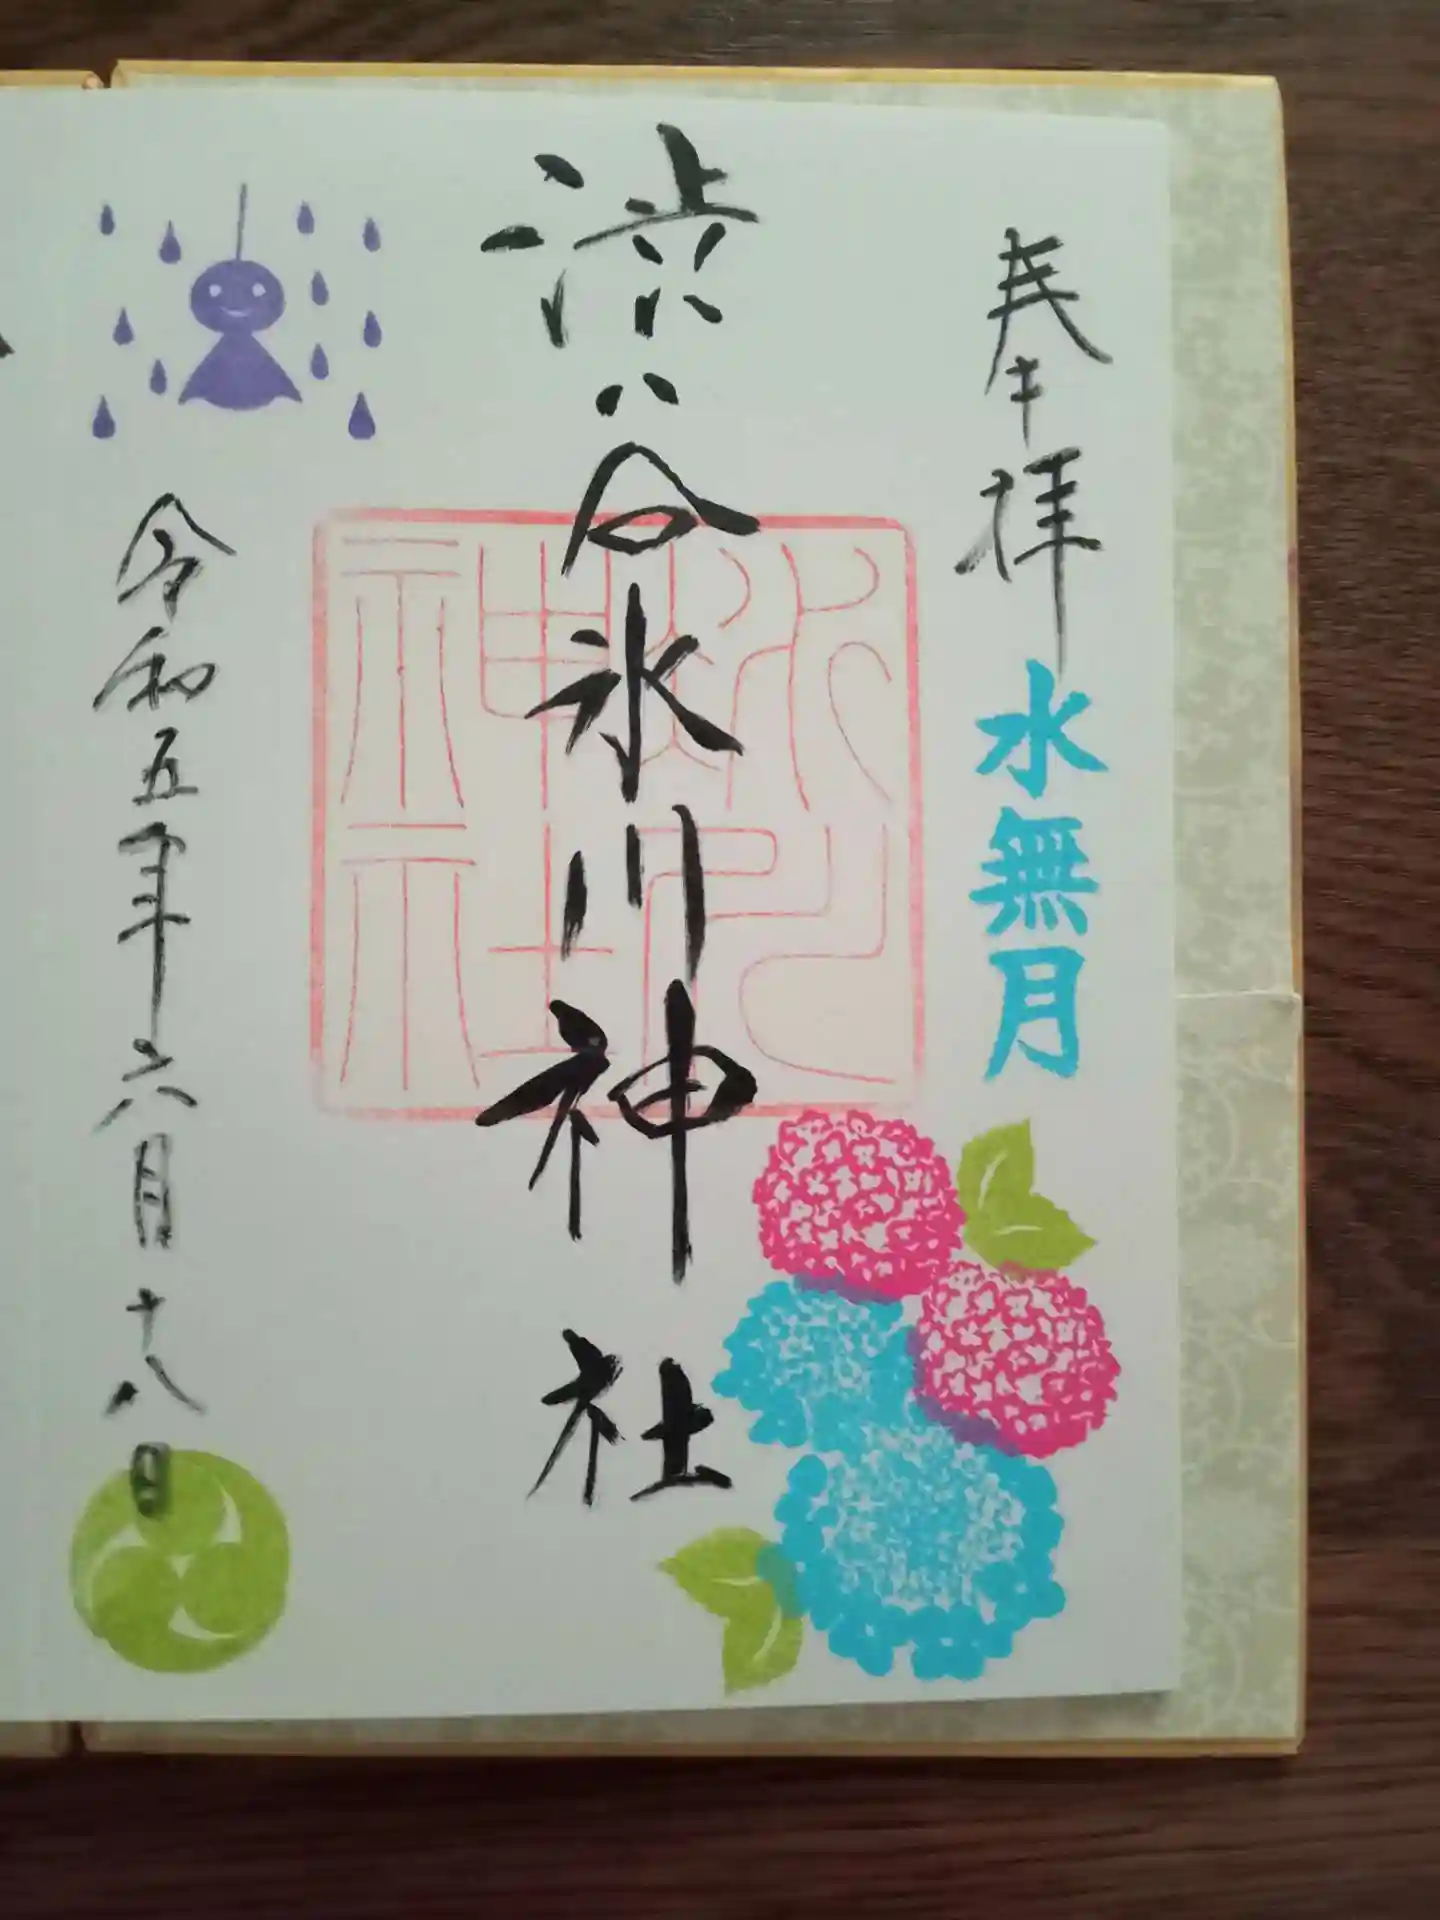 奉拝
水無月
渋谷氷川神社
氷川
神社
令和五年六月十八日